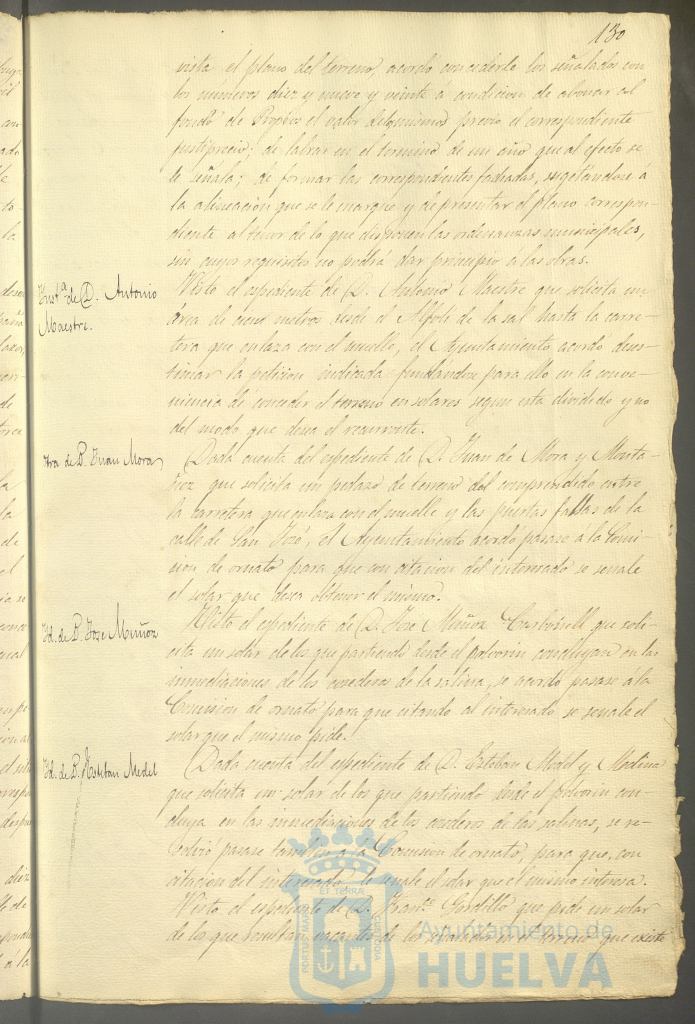 130
vista el plano del terreno, acordó concederle los señalados con
los numeros diez y nueve y veinte a condicion de abonar al
fondo de Propios el valor del mismo previo el correspondiente
justiprecio; de labrar en el termino de un año que al efecto se
le señala; de formar las correspondientes fachadas, sugetandose á
la alineacion que se le marque y de presentar el plano correspon-
diente al tenor de lo que disponen las ordenanzas municipales,
sin cuyos requisitos no podrá dar principio a las obras.
Inst.ª de D. Antonio
Maestre.
Visto el espediente de D. Antonio Maestre que solicita un
área de cien metros desde el Alfolí de la sal hasta la carre-
tera que enlaza con el muelle, el Ayuntamiento acordó deses-
timar la peticion indicada fundandose para ello en la conve-
niencia de conceder el terreno en solares segun está dividido y no
del modo que desea el recurrente.
Otra de D. Juan Mora
Dada cuenta del espediente de D. Juan de Mora y Monta-
ñez que solicita un pedazo de terreno del comprendido entre
la carretera que enlaza con el muelle y las puertas falsas de la
calle de San José, el Ayuntamiento acordó pasase á la Comi-
sion de ornato para que con citacion del interesado se señale
el solar que desea obtener el mismo.
Id. de D. Jose Muñoz
Visto el espediente de D. Jose Muñoz Carbonell que soli-
cita un solar de los que partiendo desde el polvorin concluyan en las
inmediaciones de los cocederos de la salina, se acordó pasase á la
Comision de ornato para que citando al interesado se señale el
solar que el mismo pide.
Id. de D. Esteban Medel
Dada cuenta del espediente de D. Esteban Medel y Medina
que solicita un solar de los que partiendo desde el polvorin con-
cluya en las inmediaciones de los cocederos de las salinas, se re-
solvió pasase tambien á la Comision de ornato, para que, con
citacion del interesado, le señale el solar que el mismo interesa.
Visto el espediente de D. Fran.co Gordillo que pide un solar
de los que resultan vacantes de los señalados en el terreno que existe
Ayuntamiento de
HUELVA